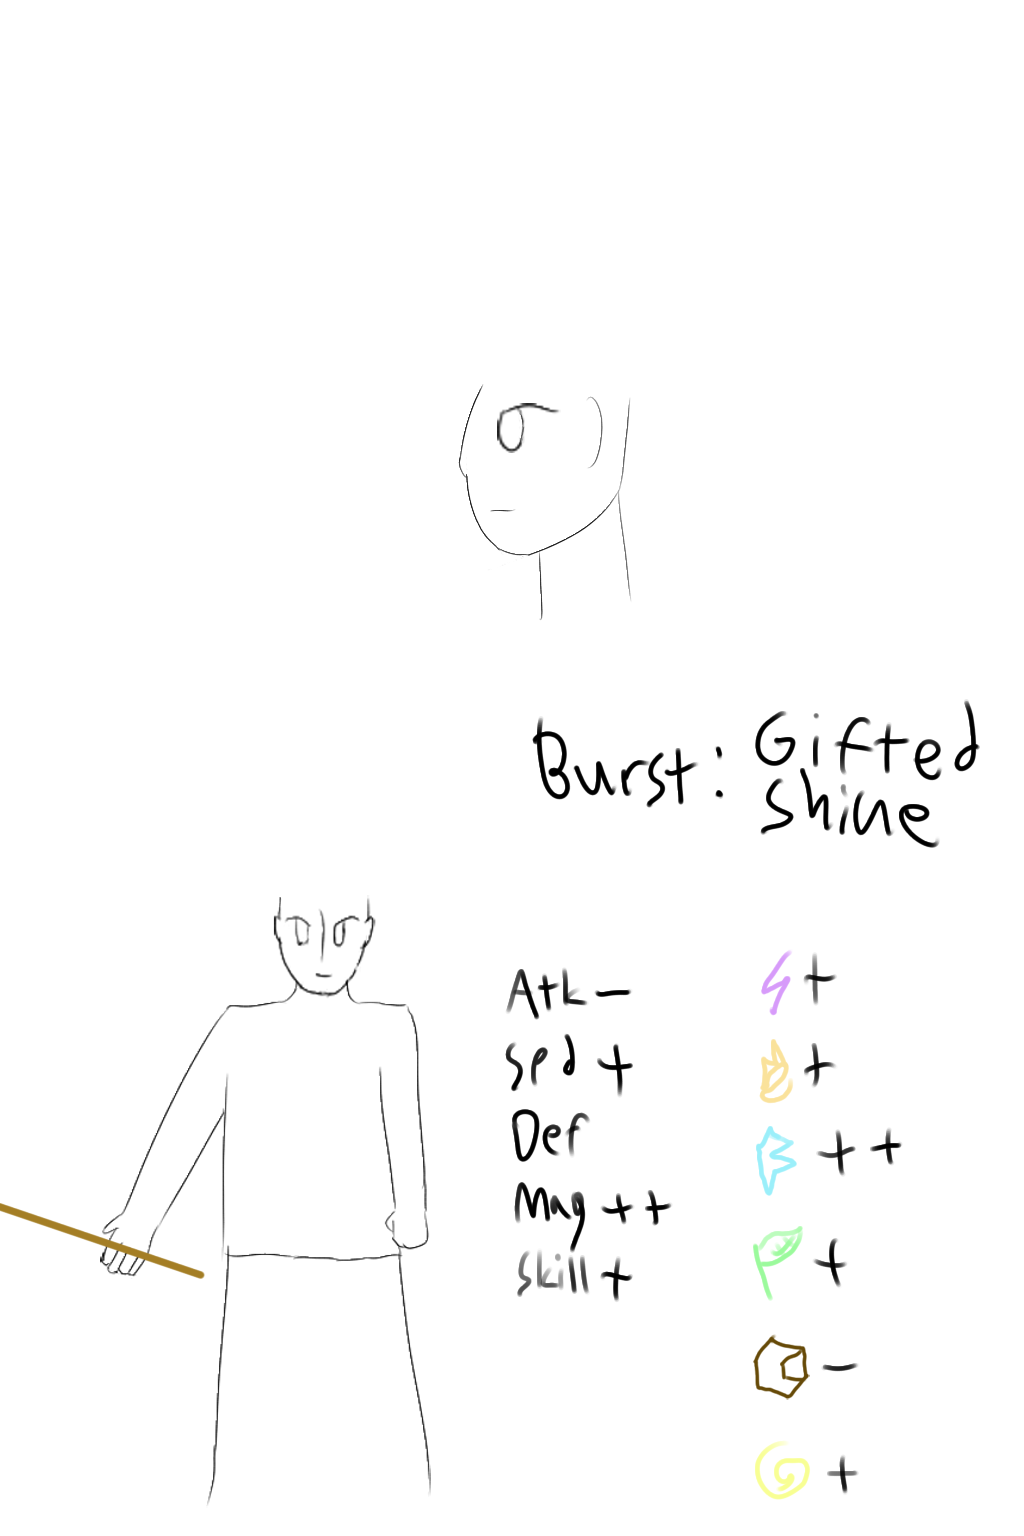 Burst: Gifted
shine
Atk - +
Spd + +
Def ++
Mag ++ +
Skill + -
+